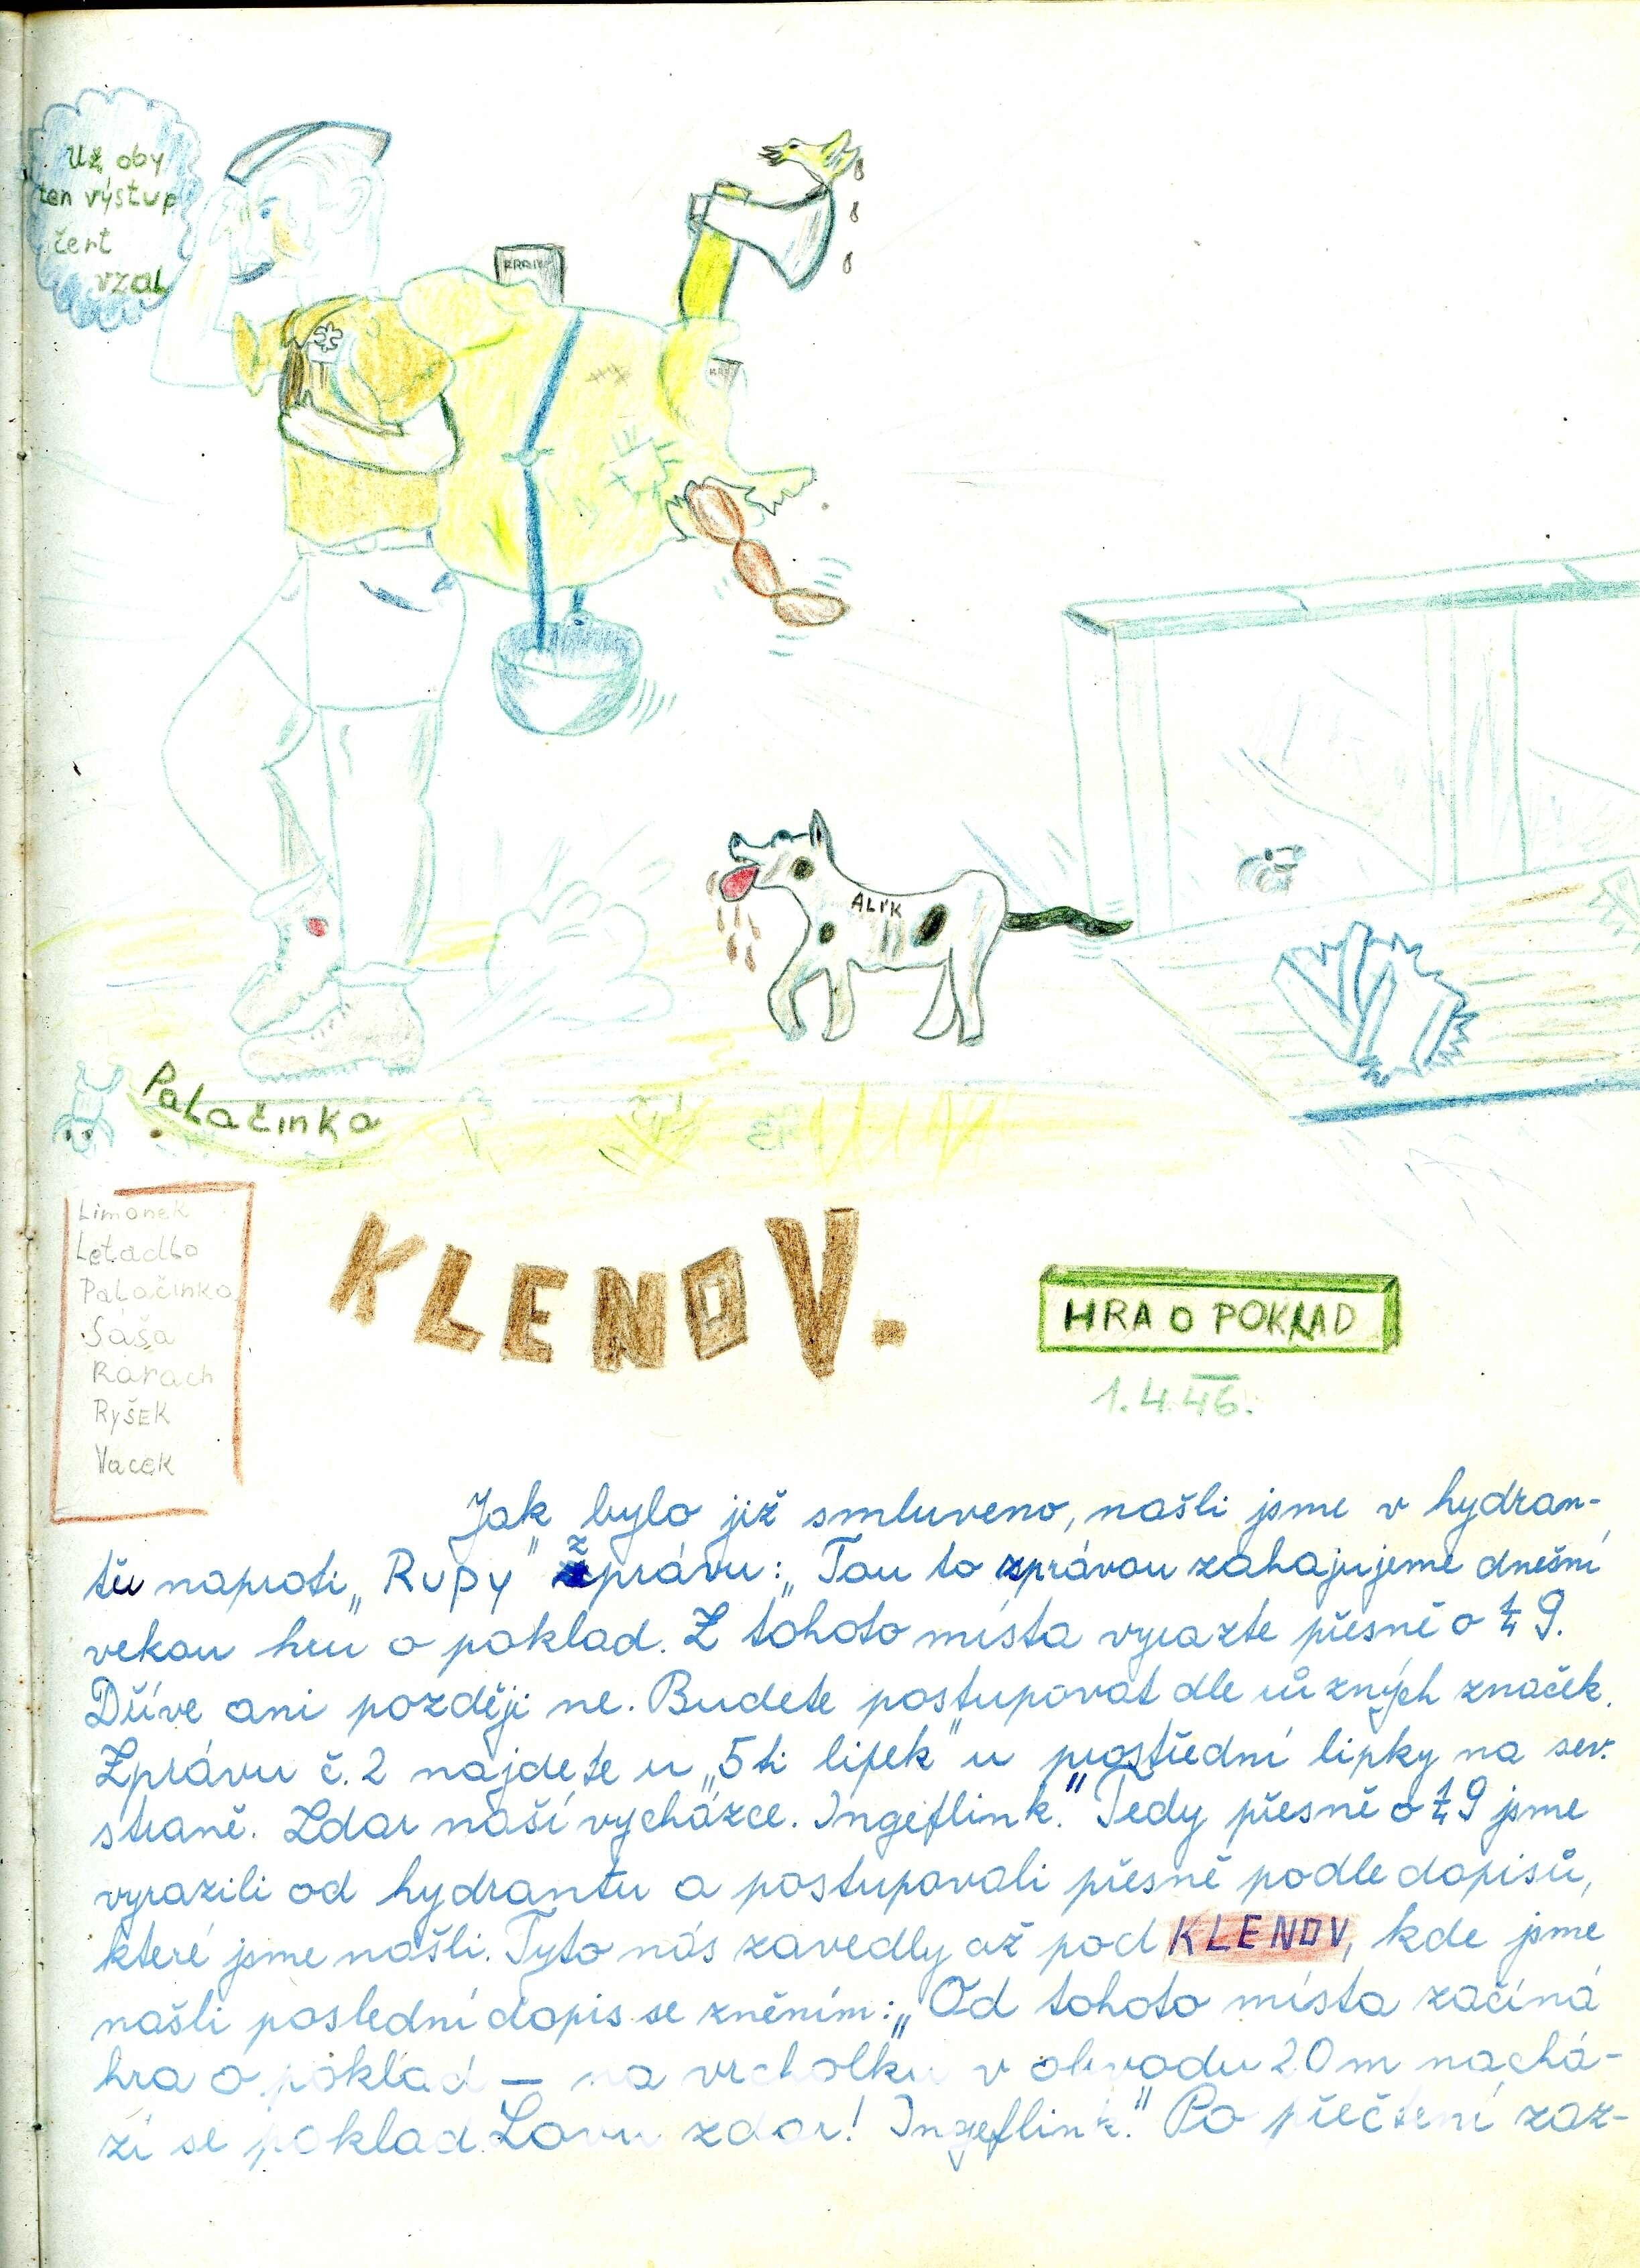 Už, oby
ten výstup
čert
vzal
ALÍK
Palačinka
Limonek
Letadlo
Palačinka
Sáša
Rarach
Ryšek
Vacek
KLENOV.
HRA O POKLAD
1.4.46.
Jak bylo již smluveno, našli jsme v hydran-
tu naproti „Rupy" zprávu: „Tou to zprávou zahajujeme dnešní
vekou hru o poklad. Z tohoto místa vyrazte přesně o ¼ 9.
Dříve ani později ne. Budete postupovat dle různých značek.
Zprávu č. 2 najdete u „5ti lipek" u prostřední lipky na sev.
straně. Zdar naší vycházce. Ingeflink." Tedy přesně o ¼ 9 jsme
vyrazili od hydrantu a postupovali přesně podle dopisů,
které jsme našli. Tyto nás zavedly až pod KLENOV, kde jsme
našli poslední dopis se zněním: „Od tohoto místa začíná
hra o poklad — na vrcholku v obvodu 20 m nachá-
zí se poklad. Lovu zdar! Ingeflink." Po přečtení zaz-